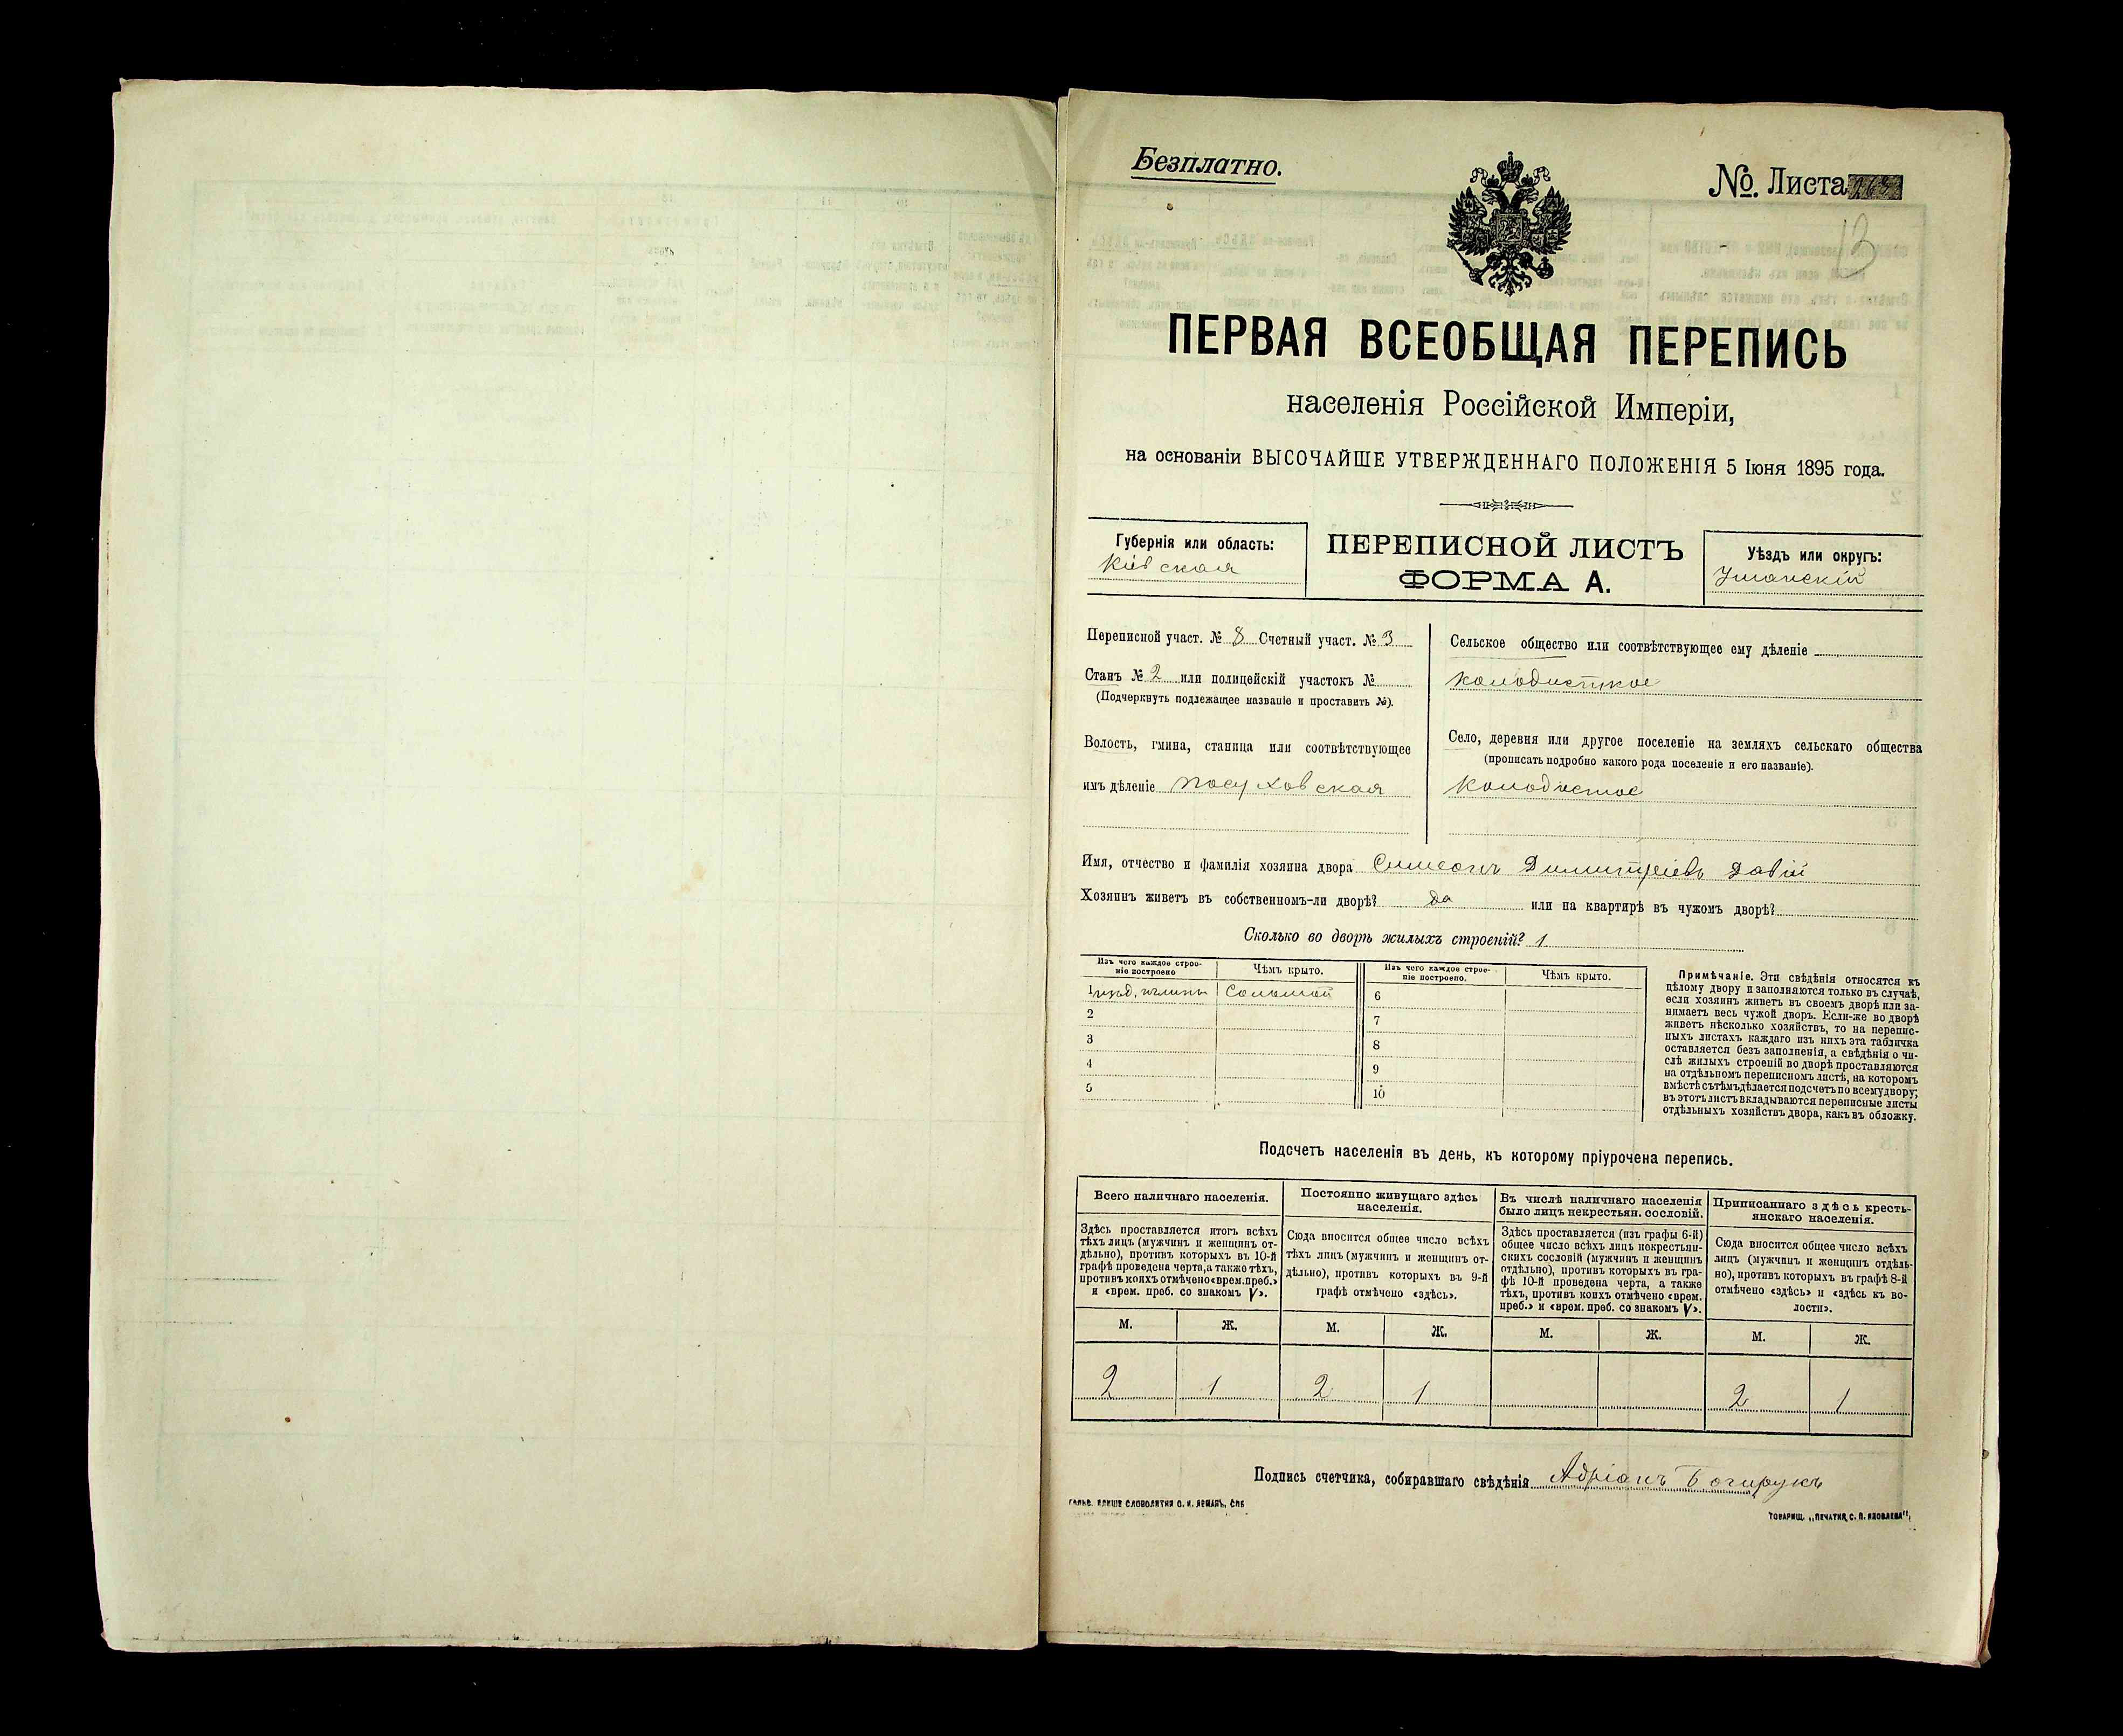 Безплатно.
№. Листа
13
ПЕРВАЯ ВСЕОБЩАЯ ПЕРЕПИСЬ
населенія Россійской Имперіи,
на основаніи ВЫСОЧАЙШЕ УТВЕРЖДЕННАГО ПОЛОЖЕНІЯ 5 Іюня 1895 года.
Губернія или область:
Кіевская
ПЕРЕПИСНОЙ ЛИСТЪ
ФОРМА А.
Уѣздъ или округъ:
Уманскій
Переписной участ. № 8 Счетный участ. № 3
Станъ № 2 или полицейскій участокъ №
(Подчеркнуть подлежащее названіе и проставить №).
Волость, гмина, станица или соотвѣтствующее
имъ дѣленіе Посуховская
Сельское общество или соотвѣтствующее ему дѣленіе
Колодисткое
Село, деревня или другое поселеніе на земляхъ сельскаго общества
(прописать подробно какого рода поселеніе и его названіе).
Колодистое
Имя, отчество и фамилія хозяина двора Симеонъ Димитріевъ Давій
Хозяинъ живетъ въ собственномъ-ли дворѣ? да или на квартирѣ въ чужомъ дворѣ?
Сколько во дворѣ жилыхъ строеній? 1
Изъ чего каждое строе-
ніе построено
Чѣмъ крыто.
Изъ чего каждое строе-
ніе построено.
Чѣмъ крыто.
1 глины Соломой 6
2 7
3 8
4 9
5 10
Примѣчаніе. Эти свѣдѣнія относятся къ
цѣлому двору и заполняются только въ случаѣ,
если хозяинъ живетъ въ своемъ дворѣ или за-
нимаетъ весь чужой дворъ. Если-же во дворѣ
живетъ нѣсколько хозяйствъ, то на перепис-
ныхъ листахъ каждаго изъ нихъ эта табличка
оставляется безъ заполненія, а свѣдѣнія о чи-
слѣ жилыхъ строеній во дворѣ проставляются
на отдѣльномъ переписномъ листѣ, на которомъ
вмѣстѣ съ тѣмъ дѣлается подсчетъ по всему двору;
въ этотъ листъ вкладываются переписные листы
отдѣльныхъ хозяйствъ двора, какъ въ обложку.
Подсчетъ населенія въ день, къ которому пріурочена перепись.
Всего наличнаго населенія.
Здѣсь проставляется итогъ всѣхъ
тѣхъ лицъ (мужчинъ и женщинъ от-
дѣльно), противъ которыхъ въ 10-й
графѣ проведена черта, а также тѣхъ,
противъ коихъ отмѣчено «врем. преб.»
и «врем. преб. со знакомъ V».
Постоянно живущаго здѣсь
населенія.
Сюда вносится общее число всѣхъ
тѣхъ лицъ (мужчинъ и женщинъ от-
дѣльно), противъ которыхъ въ 9-й
графѣ отмѣчено «здѣсь».
Въ числѣ наличнаго населенія
было лицъ некрестьян. сословій.
Здѣсь проставляется (изъ графы 6-й)
общее число всѣхъ лицъ некрестьян-
скихъ сословій (мужчинъ и женщинъ
отдѣльно), противъ которыхъ въ гра-
фѣ 10-й проведена черта, а также
тѣхъ, противъ коихъ отмѣчено «врем.
преб.» и «врем. преб. со знакомъ V».
Приписаннаго здѣсь кресть-
янскаго населенія.
Сюда вносится общее число всѣхъ
лицъ (мужчинъ и женщинъ отдѣль-
но), противъ которыхъ въ графѣ 8-й
отмѣчено «здѣсь» и «здѣсь къ во-
лости».
М. Ж. М. Ж. М. Ж. М. Ж.
2 1 2 1 2 1
Подпись счетчика, собиравшаго свѣдѣнія Адріанъ
ТОВАРИЩ. „ПЕЧАТНЯ С. П. ЯКОВЛЕВА".